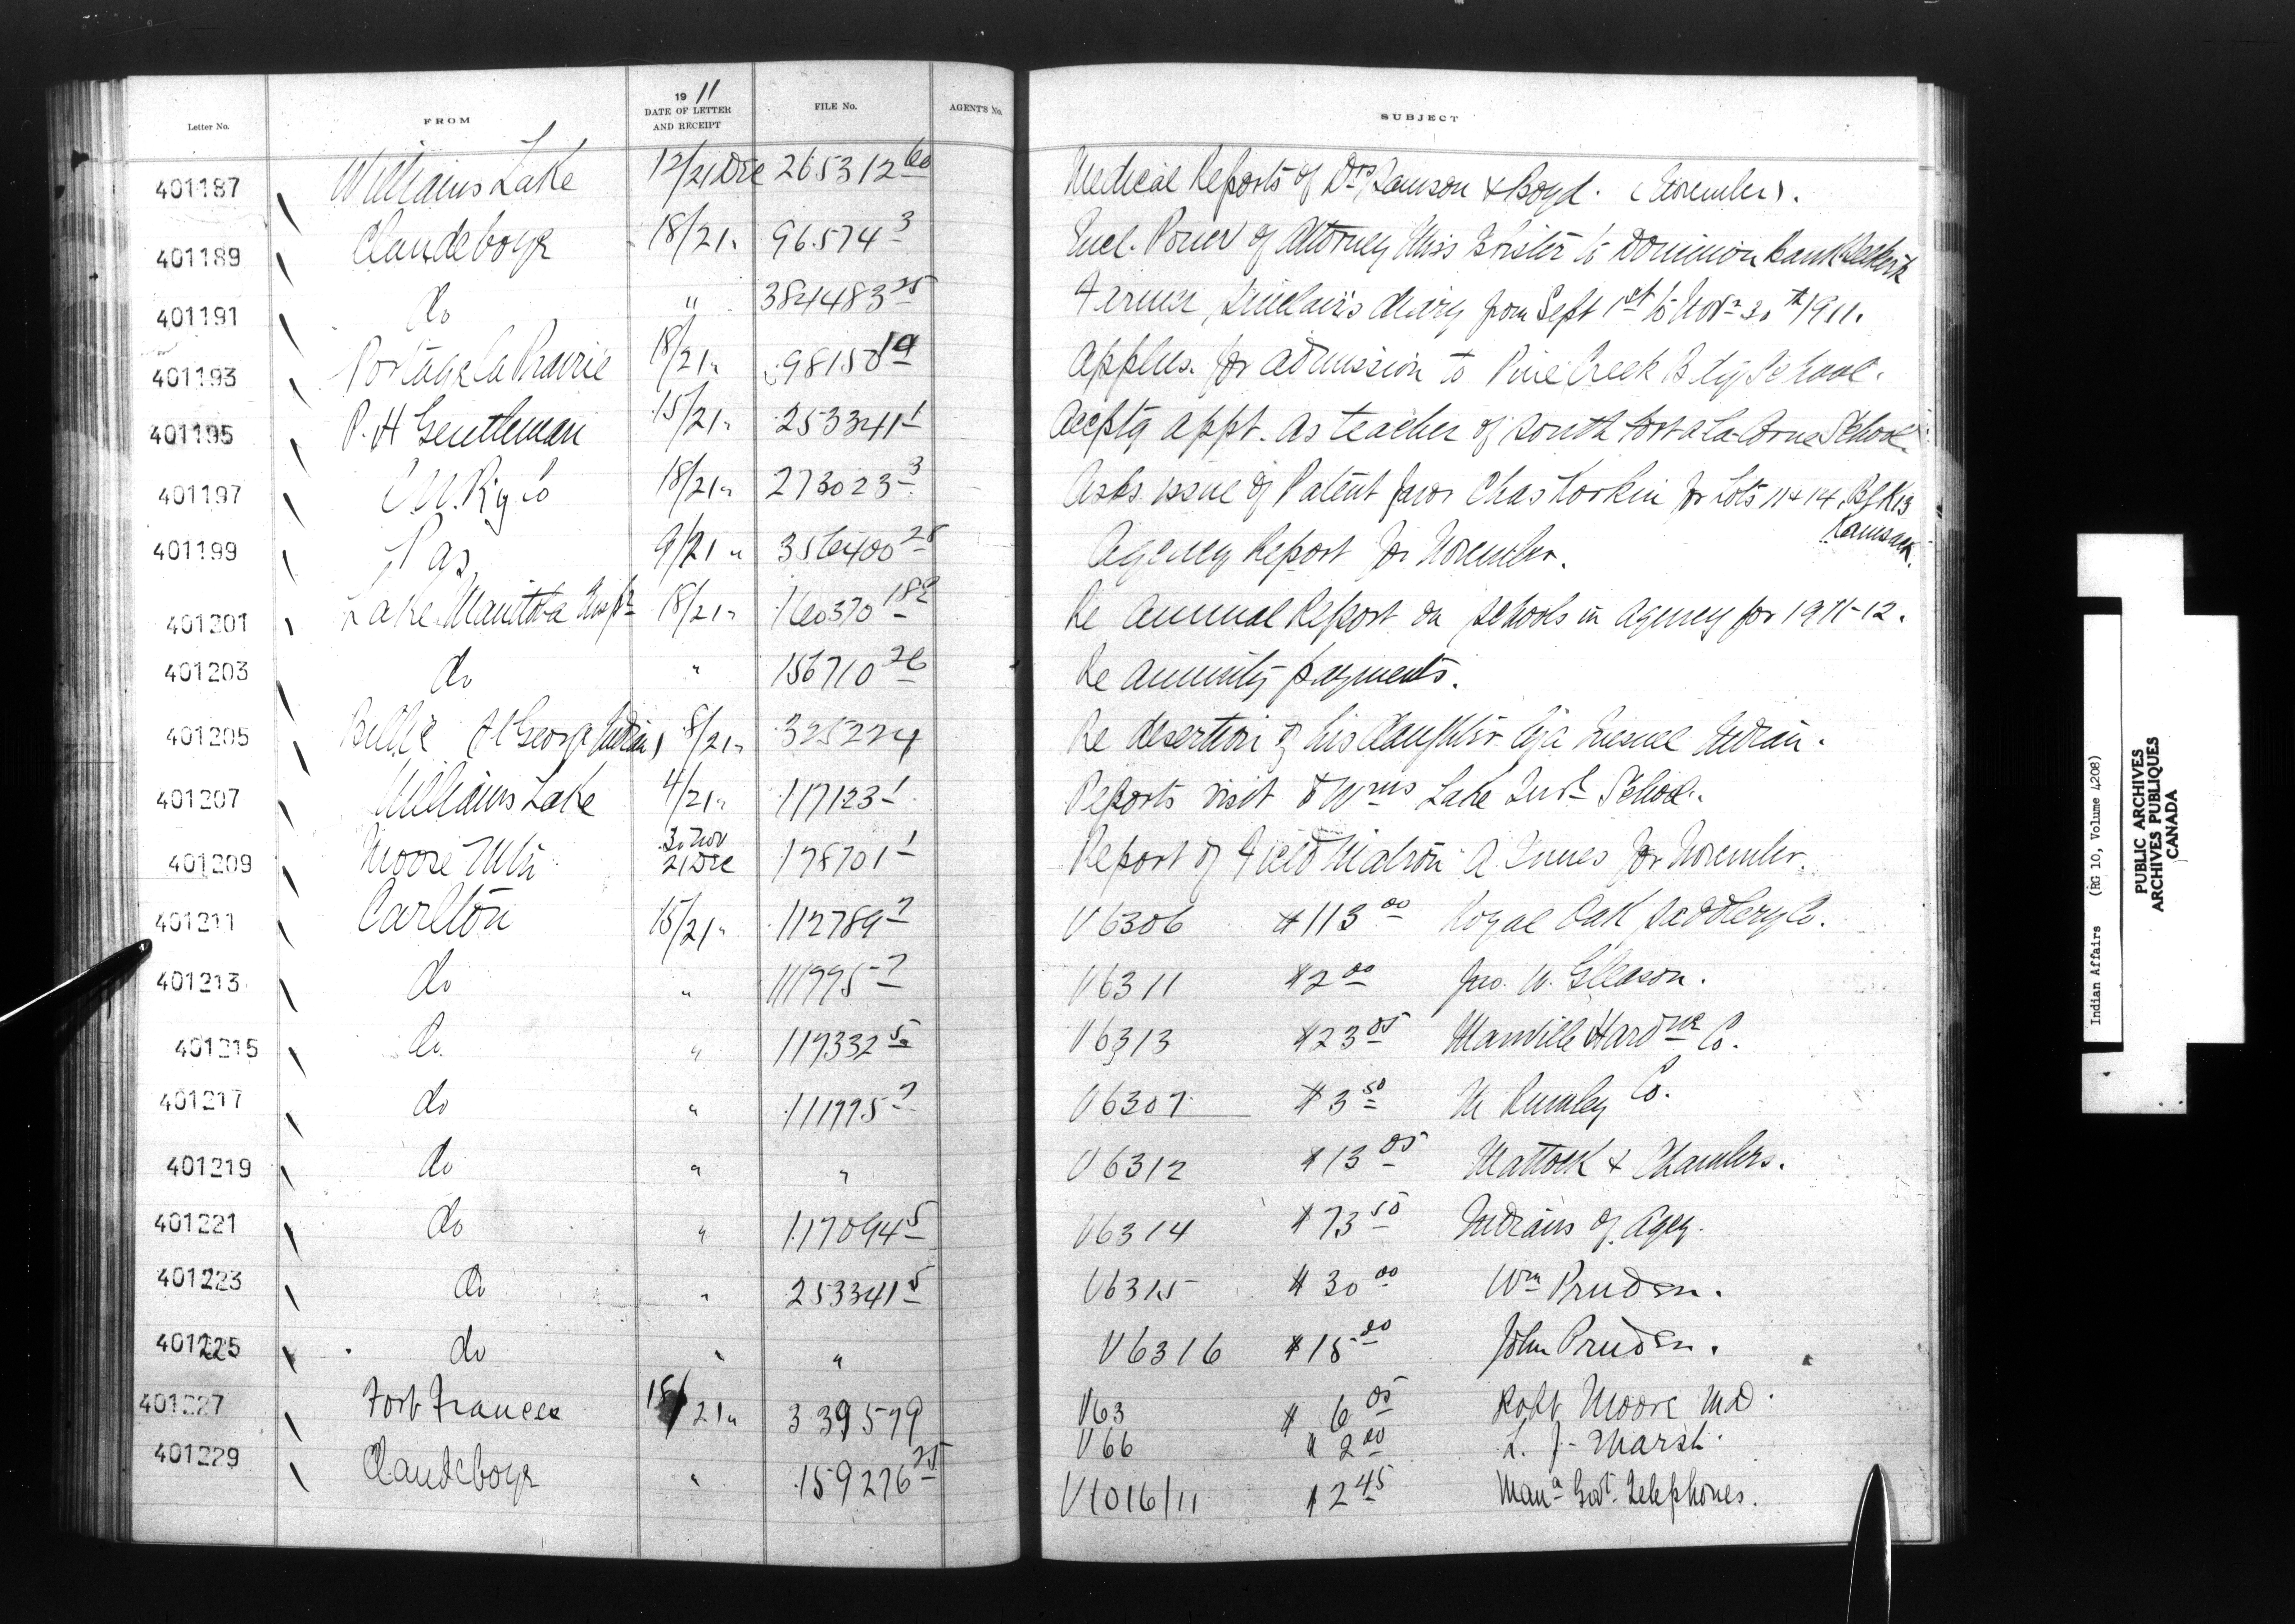 Letter No. FROM 19 11 DATE OF LETTER AND RECEIPT FILE No. AGENT'S No. SUBJECT
401187 Williams Lake 12/21 Dec 265312 60 Medical Reports of Drs Lamson & Boyd. (November).
401189 Clandeboye 18/21 " 96574 3 Encl. Power of Attorney Miss to Dominion Bank Selkirk
401191 do " 384483 25 Farmer Sinclair's diary from Sept 1st to Novr 30th 1911.
401193 Portage la Prairie 18/21 " 98150 Applns. for admission to Pine Creek Bdg School.
401195 P. H Gentleman 15/21 " 253341 1 Acceptg appt. as teacher of South Fort a La-Corne School.
401197 C.N. Ry Co 18/21 " 273023 3 Asks issue of Patent favor Chas for Lots 11 & 14, Blk 13 Kamsack.
401199 Pas 9/21 " 356400 28 Agency Report for November.
401201 Lake Manitoba Inspte 18/21 " 160370 Re Annual Report on schools in agency for 1911-12.
401203 do " 156710 26 Re annuity payments.
401205 Billie (Ft George Indian) 8/21 " 325224 Re desertion of his daughter by a Quesnel Indian.
401207 Williams Lake 4/21 " 117123 1 Reports visit to Wms Lake Indl School.
401209 Moose Mtn 30 Nov 21 Dec 178701 1 Report of Field Matron A. Innes for November.
401211 Carlton 15/21 " 112789 7 V6306 $113 00 Royal Oak Saddlery Co.
401213 do " 111995 7 V6311 $2 00 Jno. W. Gleason.
401215 do " 119332 5 V6313 $23 05 Manville Hardwe Co.
401217 do " 111995 7 V6307 $3 50 M Rumley Co.
401219 do " " V6312 $13 05 Mattock & Chambers.
401221 do " 117094 5 V6314 $73 50 Indians of Agcy.
401223 do " 253341 5 V6315 $30 00 Wm Pruden.
401225 do " " V6316 $15 00 John Pruden.
401227 Fort Frances 18/21 " 339579 V63 $6 05 Robt Moore MD.
V66 $2 00 L. J. Marsh.
401229 Clandeboye " 159276 25 V1016/11 $2 45 Mana Govt. Telephones.
Indian Affairs (RG 10, Volume 4208)
PUBLIC ARCHIVES
ARCHIVES PUBLIQUES
CANADA